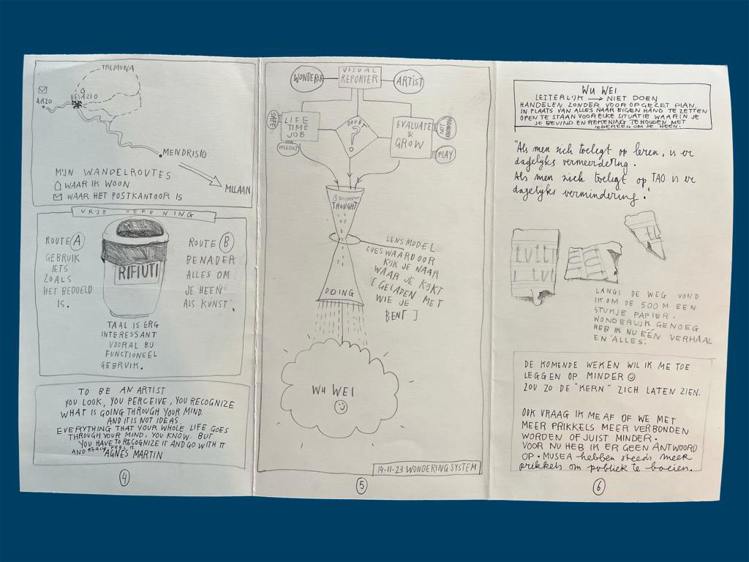 TREMONA
BESAZIO
ARZO
MENDRISIO
MILAAN
MIJN WANDELROUTES
WAAR IK WOON
WAAR HET POSTKANTOOR IS
VRIJE OEFENING
ROUTE A
GEBRUIK
IETS
ZOALS
HET BEDOELD
IS.
RIFIUTI
ROUTE B
BENADER
ALLES OM
JE HEEN
ALS KUNST.
TAAL IS ERG
INTERESSANT
VOORAL BIJ
FUNCTIONEEL
GEBRUIK.
TO BE AN ARTIST
YOU LOOK, YOU PERCEIVE, YOU RECOGNIZE
WHAT IS GOING THROUGH YOUR MIND
AND IT IS NOT IDEAS
EVERYTHING THAT YOUR WHOLE LIFE GOES
THROUGH YOUR MIND, YOU KNOW. BUT
YOU HAVE TO RECOGNIZE IT AND GO WITH IT
AND REALLY FEEL IT
AGNES MARTIN
4
WONDERER
VISUAL
REPORTER
ARTIST
LIFE
TIME
JOB
EVALUATE
&
GROW
MAY
THOUGHT
DOING
LENSMODEL
LOES WAARDOOR
KIJK JE NAAR
WAAR JE KIJKT
[GELADEN MET
WIE JE
BENT]
WU WEI
19-11-23 WONDERING SYSTEM
5
WU WEI
LETTERLIJK → NIET DOEN
HANDELEN ZONDER VOOROPGEZET PLAN.
IN PLAATS VAN ALLES NAAR EIGEN HAND TE ZETTEN
OPEN TE STAAN VOOR ELKE SITUATIE WAARIN JE
JE BEVIND EN REKENING TE HOUDEN MET
IEDEREEN OM JE HEEN.
"Als men zich toelegt op leren, is er
dagelijks vermeerdering.
Als men zich toelegt op TAO is er
dagelijks vermindering."
LANGS DE WEG VOND
IK OM DE 500 M EEN
STUKJE PAPIER.
WONDERLIJK GENOEG
HEB IK NU ÉÉN VERHAAL
EN ALLES.
DE KOMENDE WEKEN WIL IK ME TOE
LEGGEN OP MINDER
ZOU ZO DE "KERN" ZICH LATEN ZIEN.
OOK VRAAG IK ME AF OF WE MET
MEER PRIKKELS MEER VERBONDEN
WORDEN OF JUIST MINDER.
VOOR NU HEB IK ER GEEN ANTWOORD
OP. MUSEA hebben steeds meer
prikkels om publiek te boeien.
6